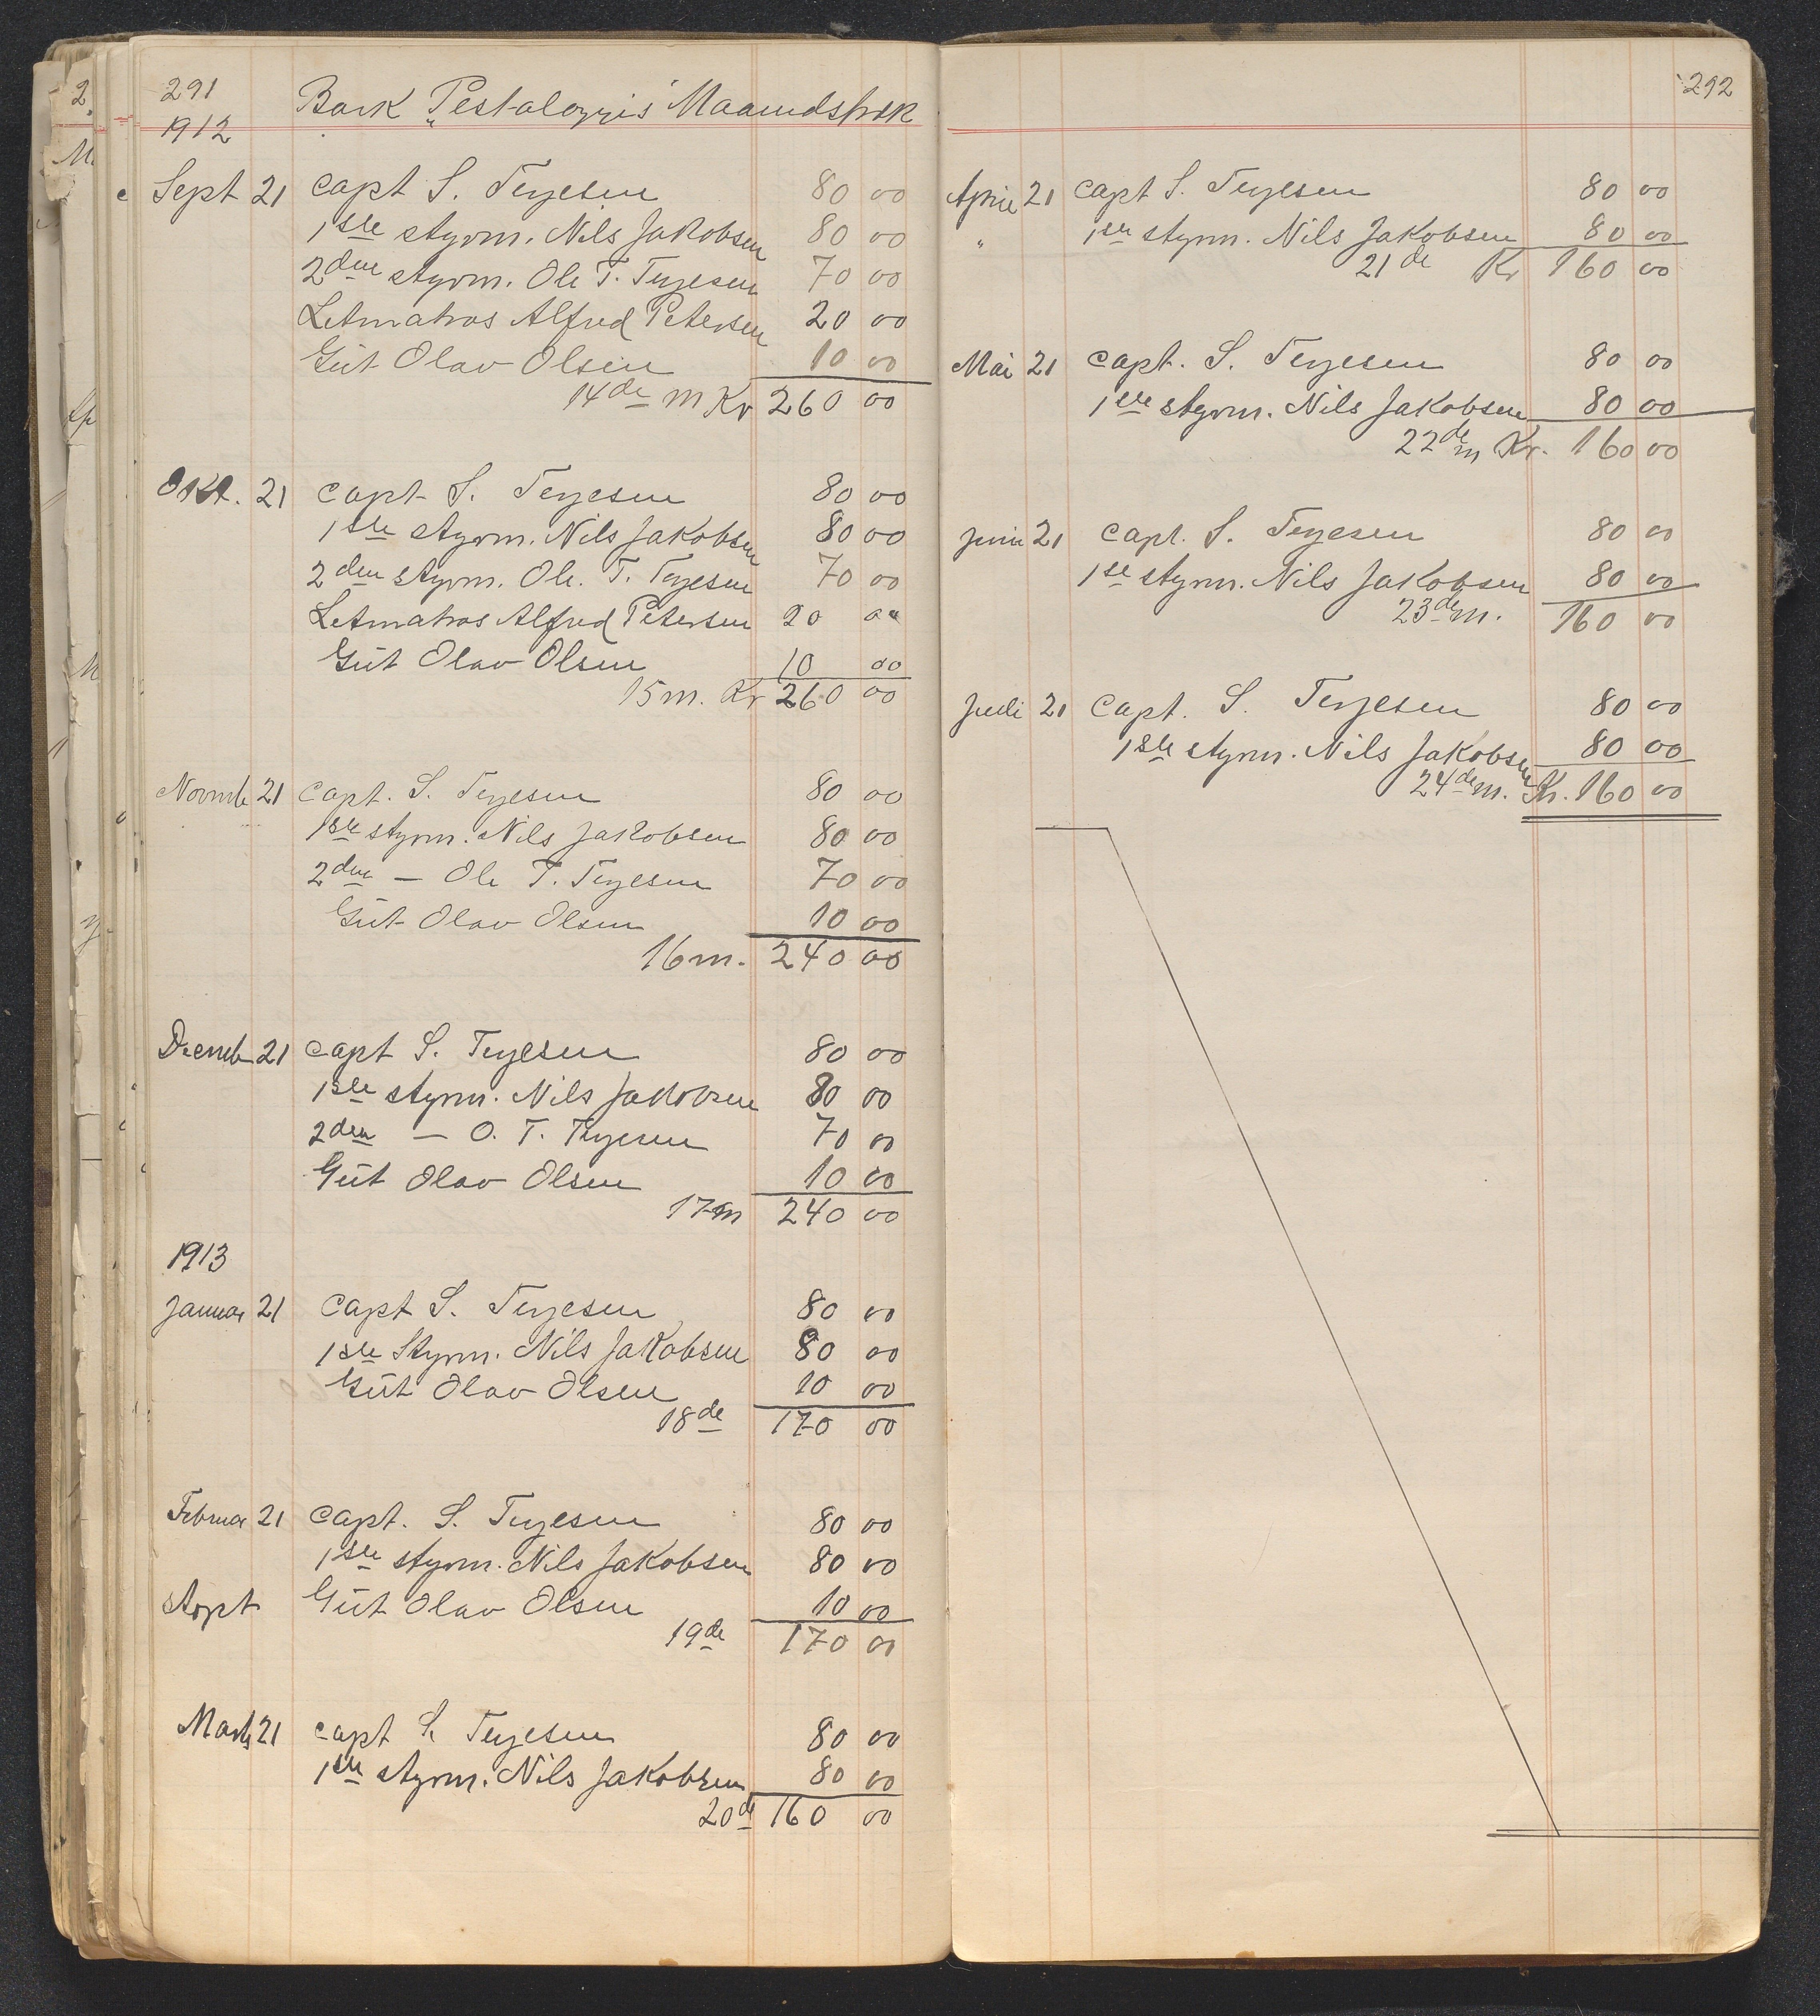 291
Bark "Pestalozzis" Maanedstræk
1912
Sept 21 Capt S. Terjesen 80 00
1ste styrm. Nils Jakobsen 80 00
2den styrm. Ole T. Terjesen 70 00
Letmatros Alfred Petersen 20 00
Gut Olav Olsen 10 00
14de m Kr 260 00
Okt. 21 Capt S. Terjesen 80 00
1ste styrm. Nils Jakobsen 80 00
2den styrm. Ole. T. Terjesen 70 00
Letmatros Alfred Petersen 20 00
Gut Olav Olsen 10 00
15 m. Kr 260 00
Novmb 21 Capt. S. Terjesen 80 00
1ste styrm. Nils Jakobsen 80 00
2den — Ole T. Terjesen 70 00
Gut Olav Olsen 10 00
16 m. 240 00
Decmb 21 Capt S. Terjesen 80 00
1ste styrm. Nils Jakobsen 80 00
2den — O. T. Terjesen 70 00
Gut Olav Olsen 10 00
17 m 240 00
1913
Januar 21 Capt S. Terjesen 80 00
1ste Styrm. Nils Jakobsen 80 00
Gut Olav Olsen 10 00
18de 170 00
Februar 21 Capt. S. Terjesen 80 00
1ste styrm. Nils Jakobsen 80 00
stopt Gut Olav Olsen 10 00
19de 170 00
Marts 21 Capt S. Terjesen 80 00
1ste styrm. Nils Jakobsen 80 00
20de 160 00
292
April 21 Capt S. Terjesen 80 00
" 1ste styrm. Nils Jakobsen 80 00
21de Kr 160 00
Mai 21 Capt. S. Terjesen 80 00
1ste styrm. Nils Jakobsen 80 00
22de m Kr. 160 00
Juni 21 Capt. S. Terjesen 80 00
1ste styrm. Nils Jakobsen 80 00
23de m. 160 00
Juli 21 Capt. S. Terjesen 80 00
1ste styrm. Nils Jakobsen 80 00
24de m. Kr. 160 00